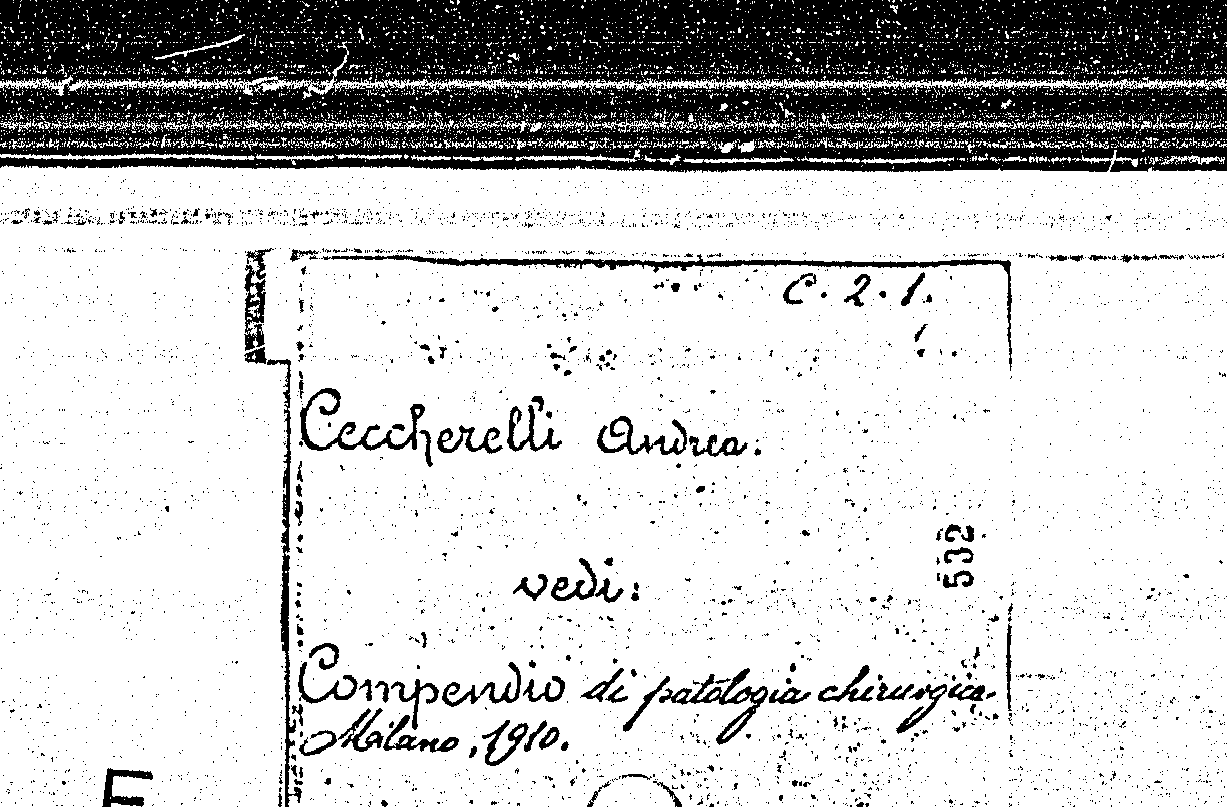 C. 2. 1.
Ceccherelli Andrea.
532
vedi:
Compendio di patologia chirurgica.
Milano, 1910.
E